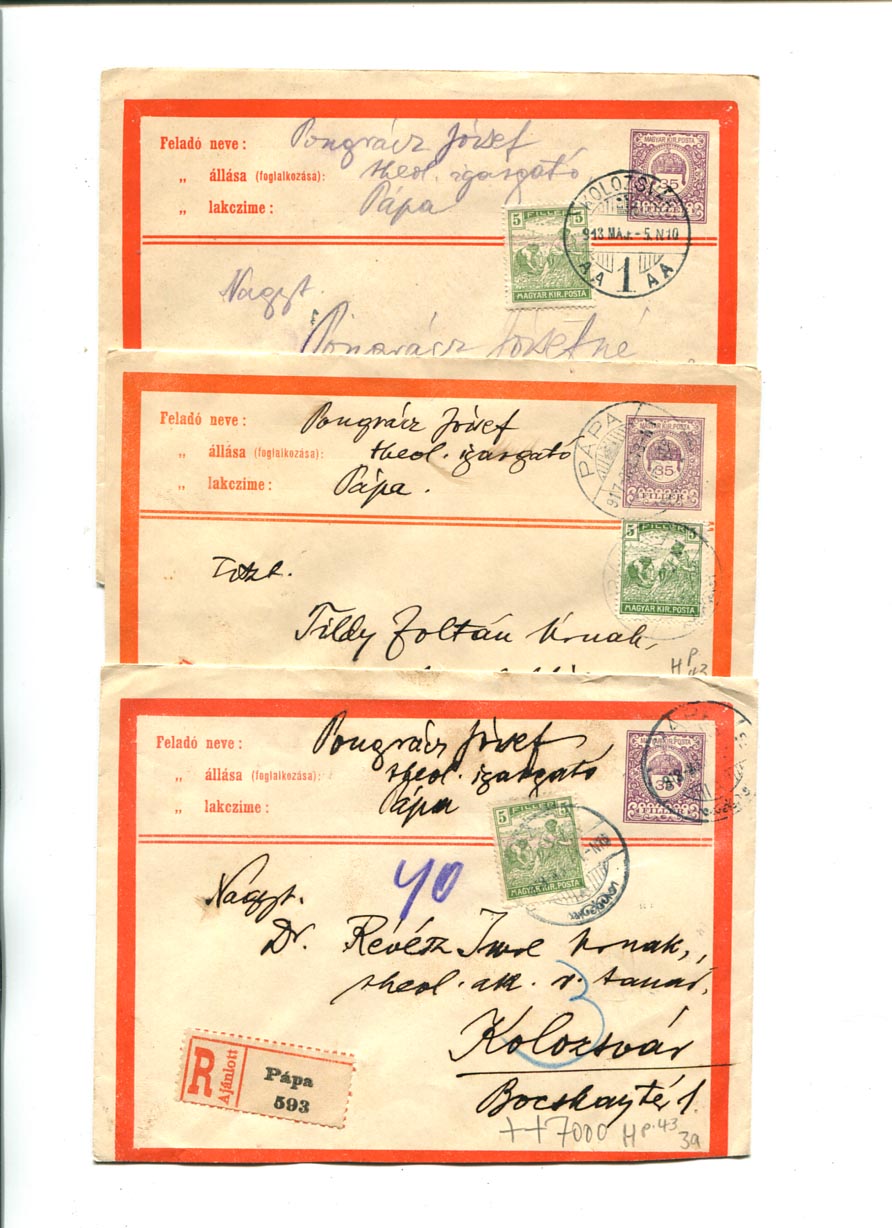 Feladó neve: Pongrácz József
„ állása (foglalkozása): theol. igazgató
„ lakczime: Pápa
MAGYAR KIR. POSTA
35
5 FILLÉR 5
MAGYAR KIR. POSTA
KOLOZSVÁR
918 MÁJ. -5. N10
AA 1 AA
Nagyt.
Pongrácz Józsefné
Feladó neve: Pongrácz József
„ állása (foglalkozása): theol. igazgató
„ lakczime: Pápa.
PÁPA
917
MAGYAR KIR. POSTA
35
FILLÉR
5 FILLÉR 5
MAGYAR KIR. POSTA
Tiszt.
Tildy Zoltán Urnak,
H P.
43
Feladó neve: Pongrácz József
„ állása (foglalkozása): theol. igazgató
„ lakczime: Pápa
PÁPA
MAGYAR KIR. POSTA
35
FILLÉR
5 FILLÉR 5
MAGYAR KIR. POSTA
40
Nagyt.
Dr. Révész Imre Urnak,
theol. ak. r. tanár,
3
Kolozsvár
Bocskaytér 1.
R Ajánlott
Pápa
593
++7000 H P.43
39